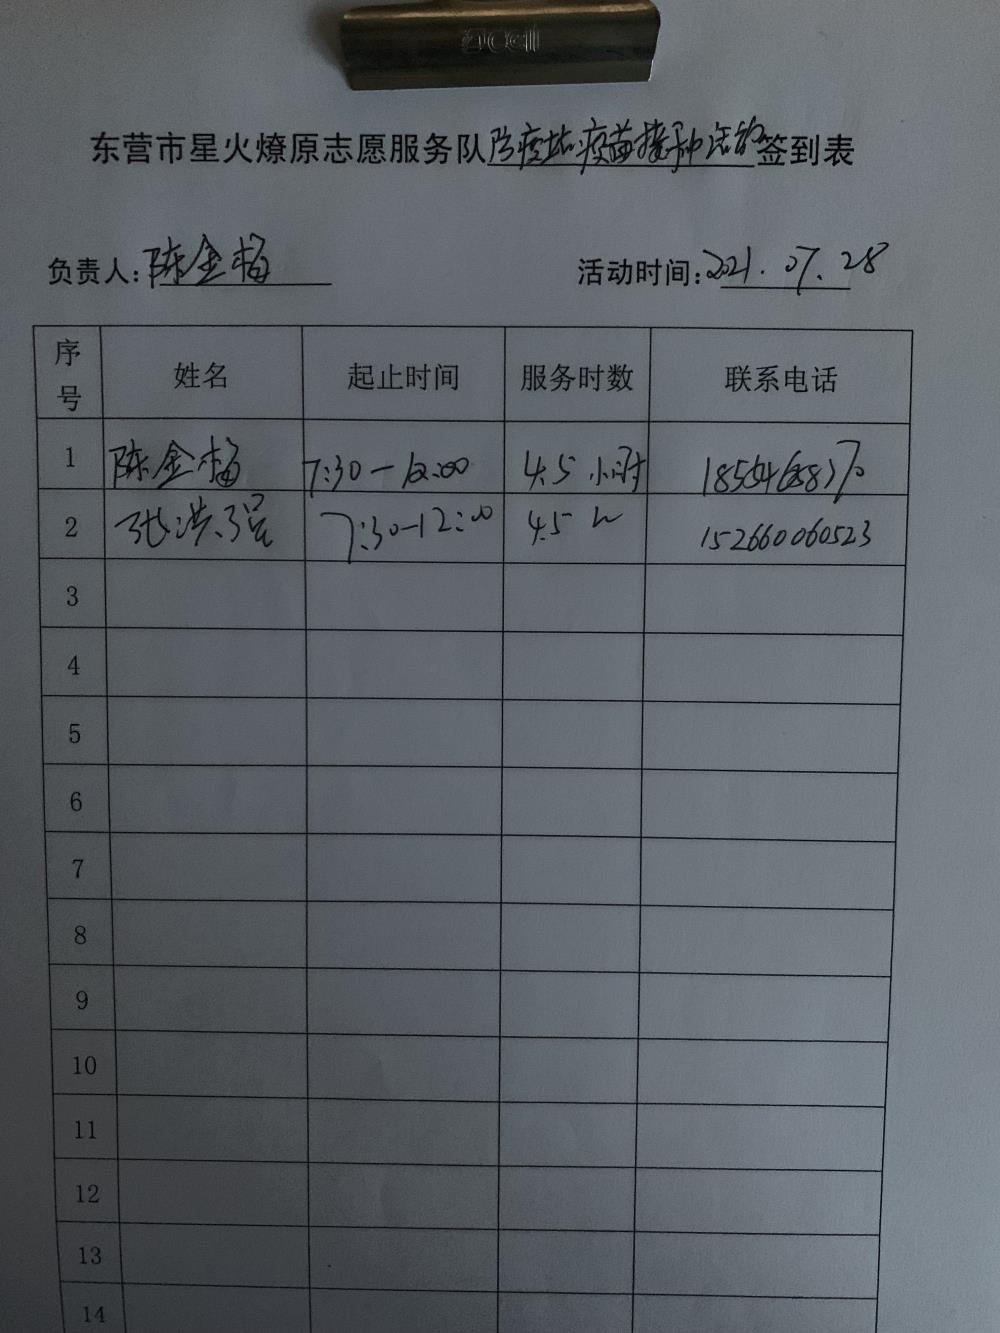 东营市星火燎原志愿服务队防疫站疫苗接种活动签到表
负责人:陈金梅 活动时间:2021.07.28
序号 姓名 起止时间 服务时数 联系电话
1 陈金梅 7:30-12:00 4.5小时
2 张洪强 7:30-12:00 4.5h 15266006523
3
4
5
6
7
8
9
10
11
12
13
14